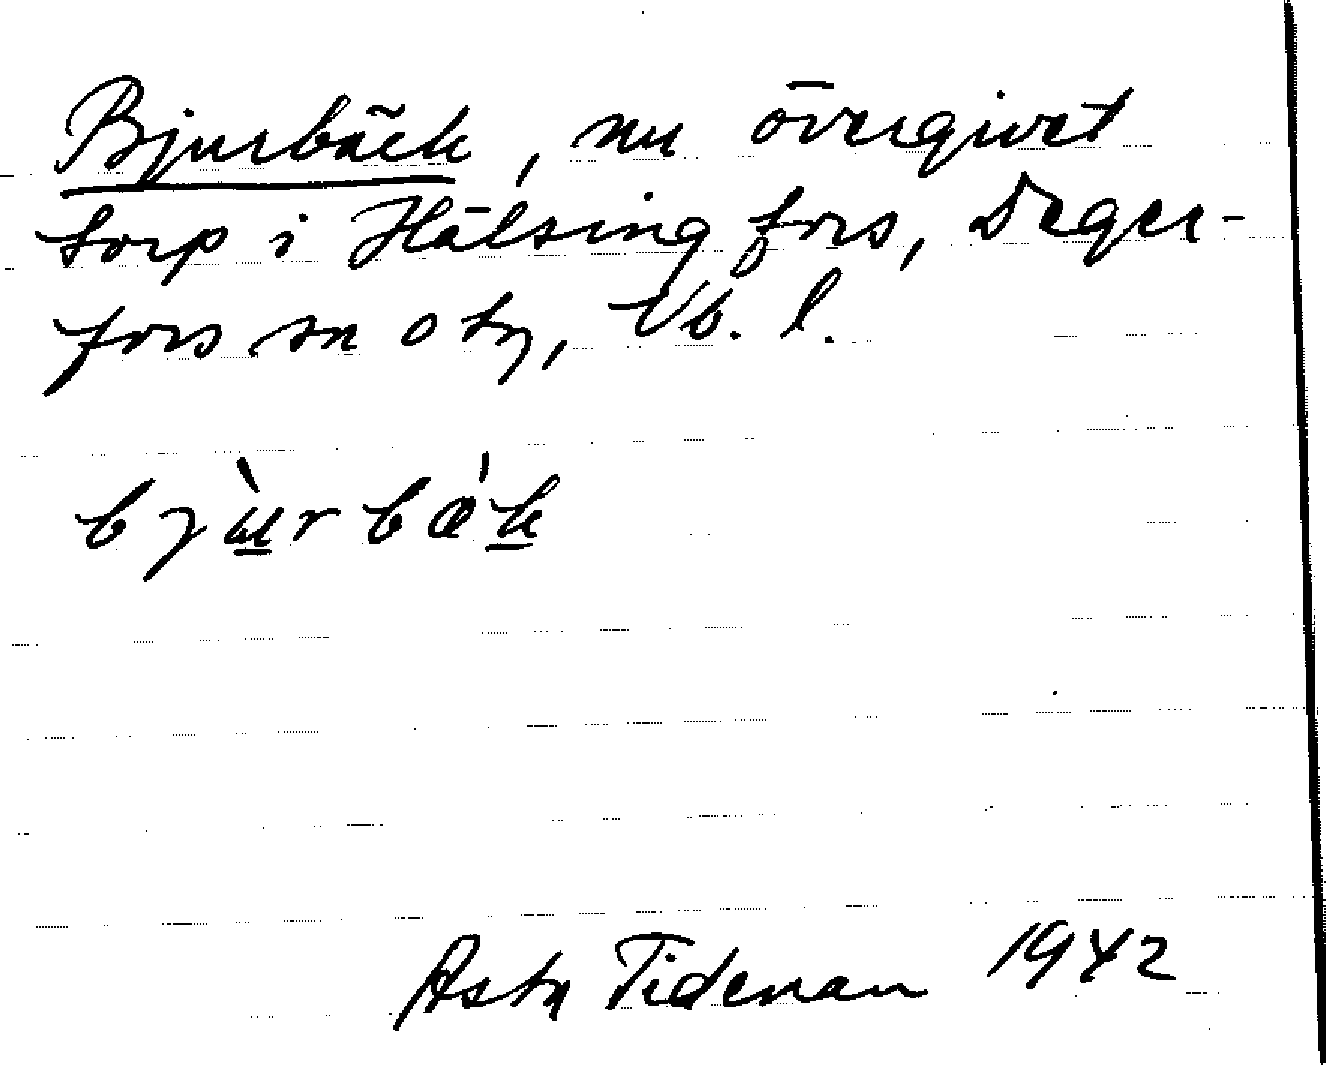 Bjurbäck, nu övergivet
torp i Hälsingfors, Deger-
fors sn o tg, Vb. l.
bjùrbǽk
Asty Tideman 1942